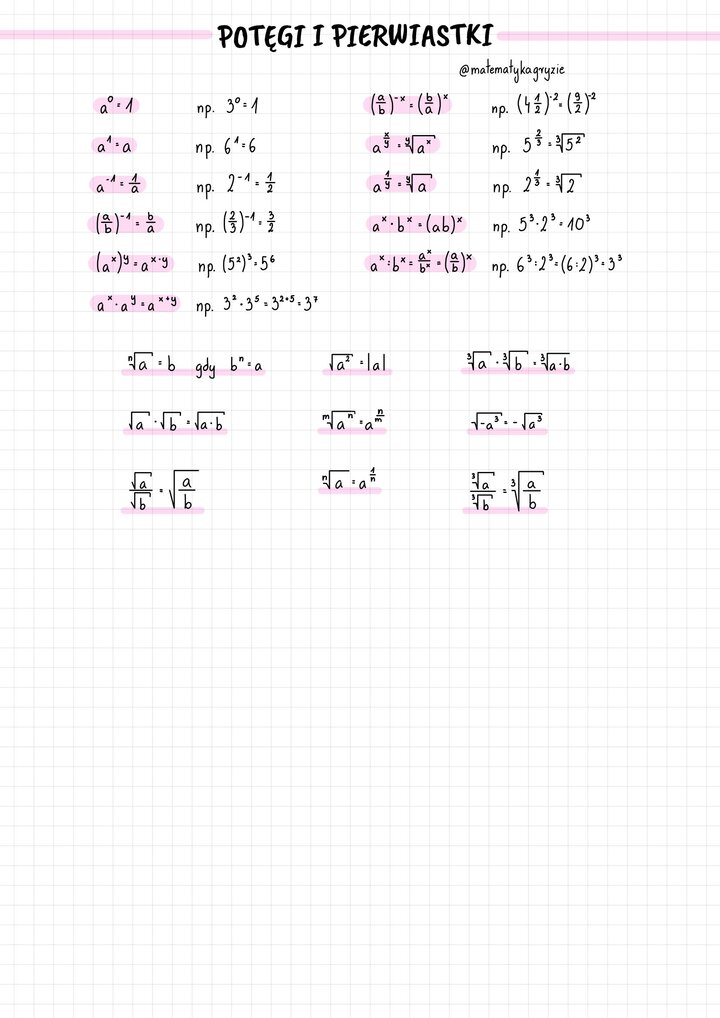 POTĘGI I PIERWIASTKI
@matematykagryzie
a⁰ = 1 np. 3⁰ = 1
a¹ = a np. 6¹ = 6
a⁻¹ = 1/a np. 2⁻¹ = 1/2
(a/b)⁻¹ = b/a np. (2/3)⁻¹ = 3/2
(aˣ)ʸ = aˣ·ʸ np. (5²)³ = 5⁶
aˣ · aʸ = aˣ⁺ʸ np. 3² · 3⁵ = 3²⁺⁵ = 3⁷
(a/b)⁻ˣ = (b/a)ˣ np. (4 1/2)⁻² = (9/2)⁻²
a^(x/y) = ʸ√aˣ np. 5^(2/3) = ³√5²
a^(1/y) = ʸ√a np. 2^(1/3) = ³√2
aˣ · bˣ = (ab)ˣ np. 5³ · 2³ = 10³
aˣ : bˣ = aˣ/bˣ = (a/b)ˣ np. 6³ : 2³ = (6:2)³ = 3³
ⁿ√a = b gdy bⁿ = a √a² = |a| ³√a · ³√b = ³√a·b
√a · √b = √a·b ᵐ√aⁿ = a^(n/m) √-a³ = -√a³
√a/√b = √(a/b) ⁿ√a = a^(1/n) ³√a/³√b = ³√(a/b)